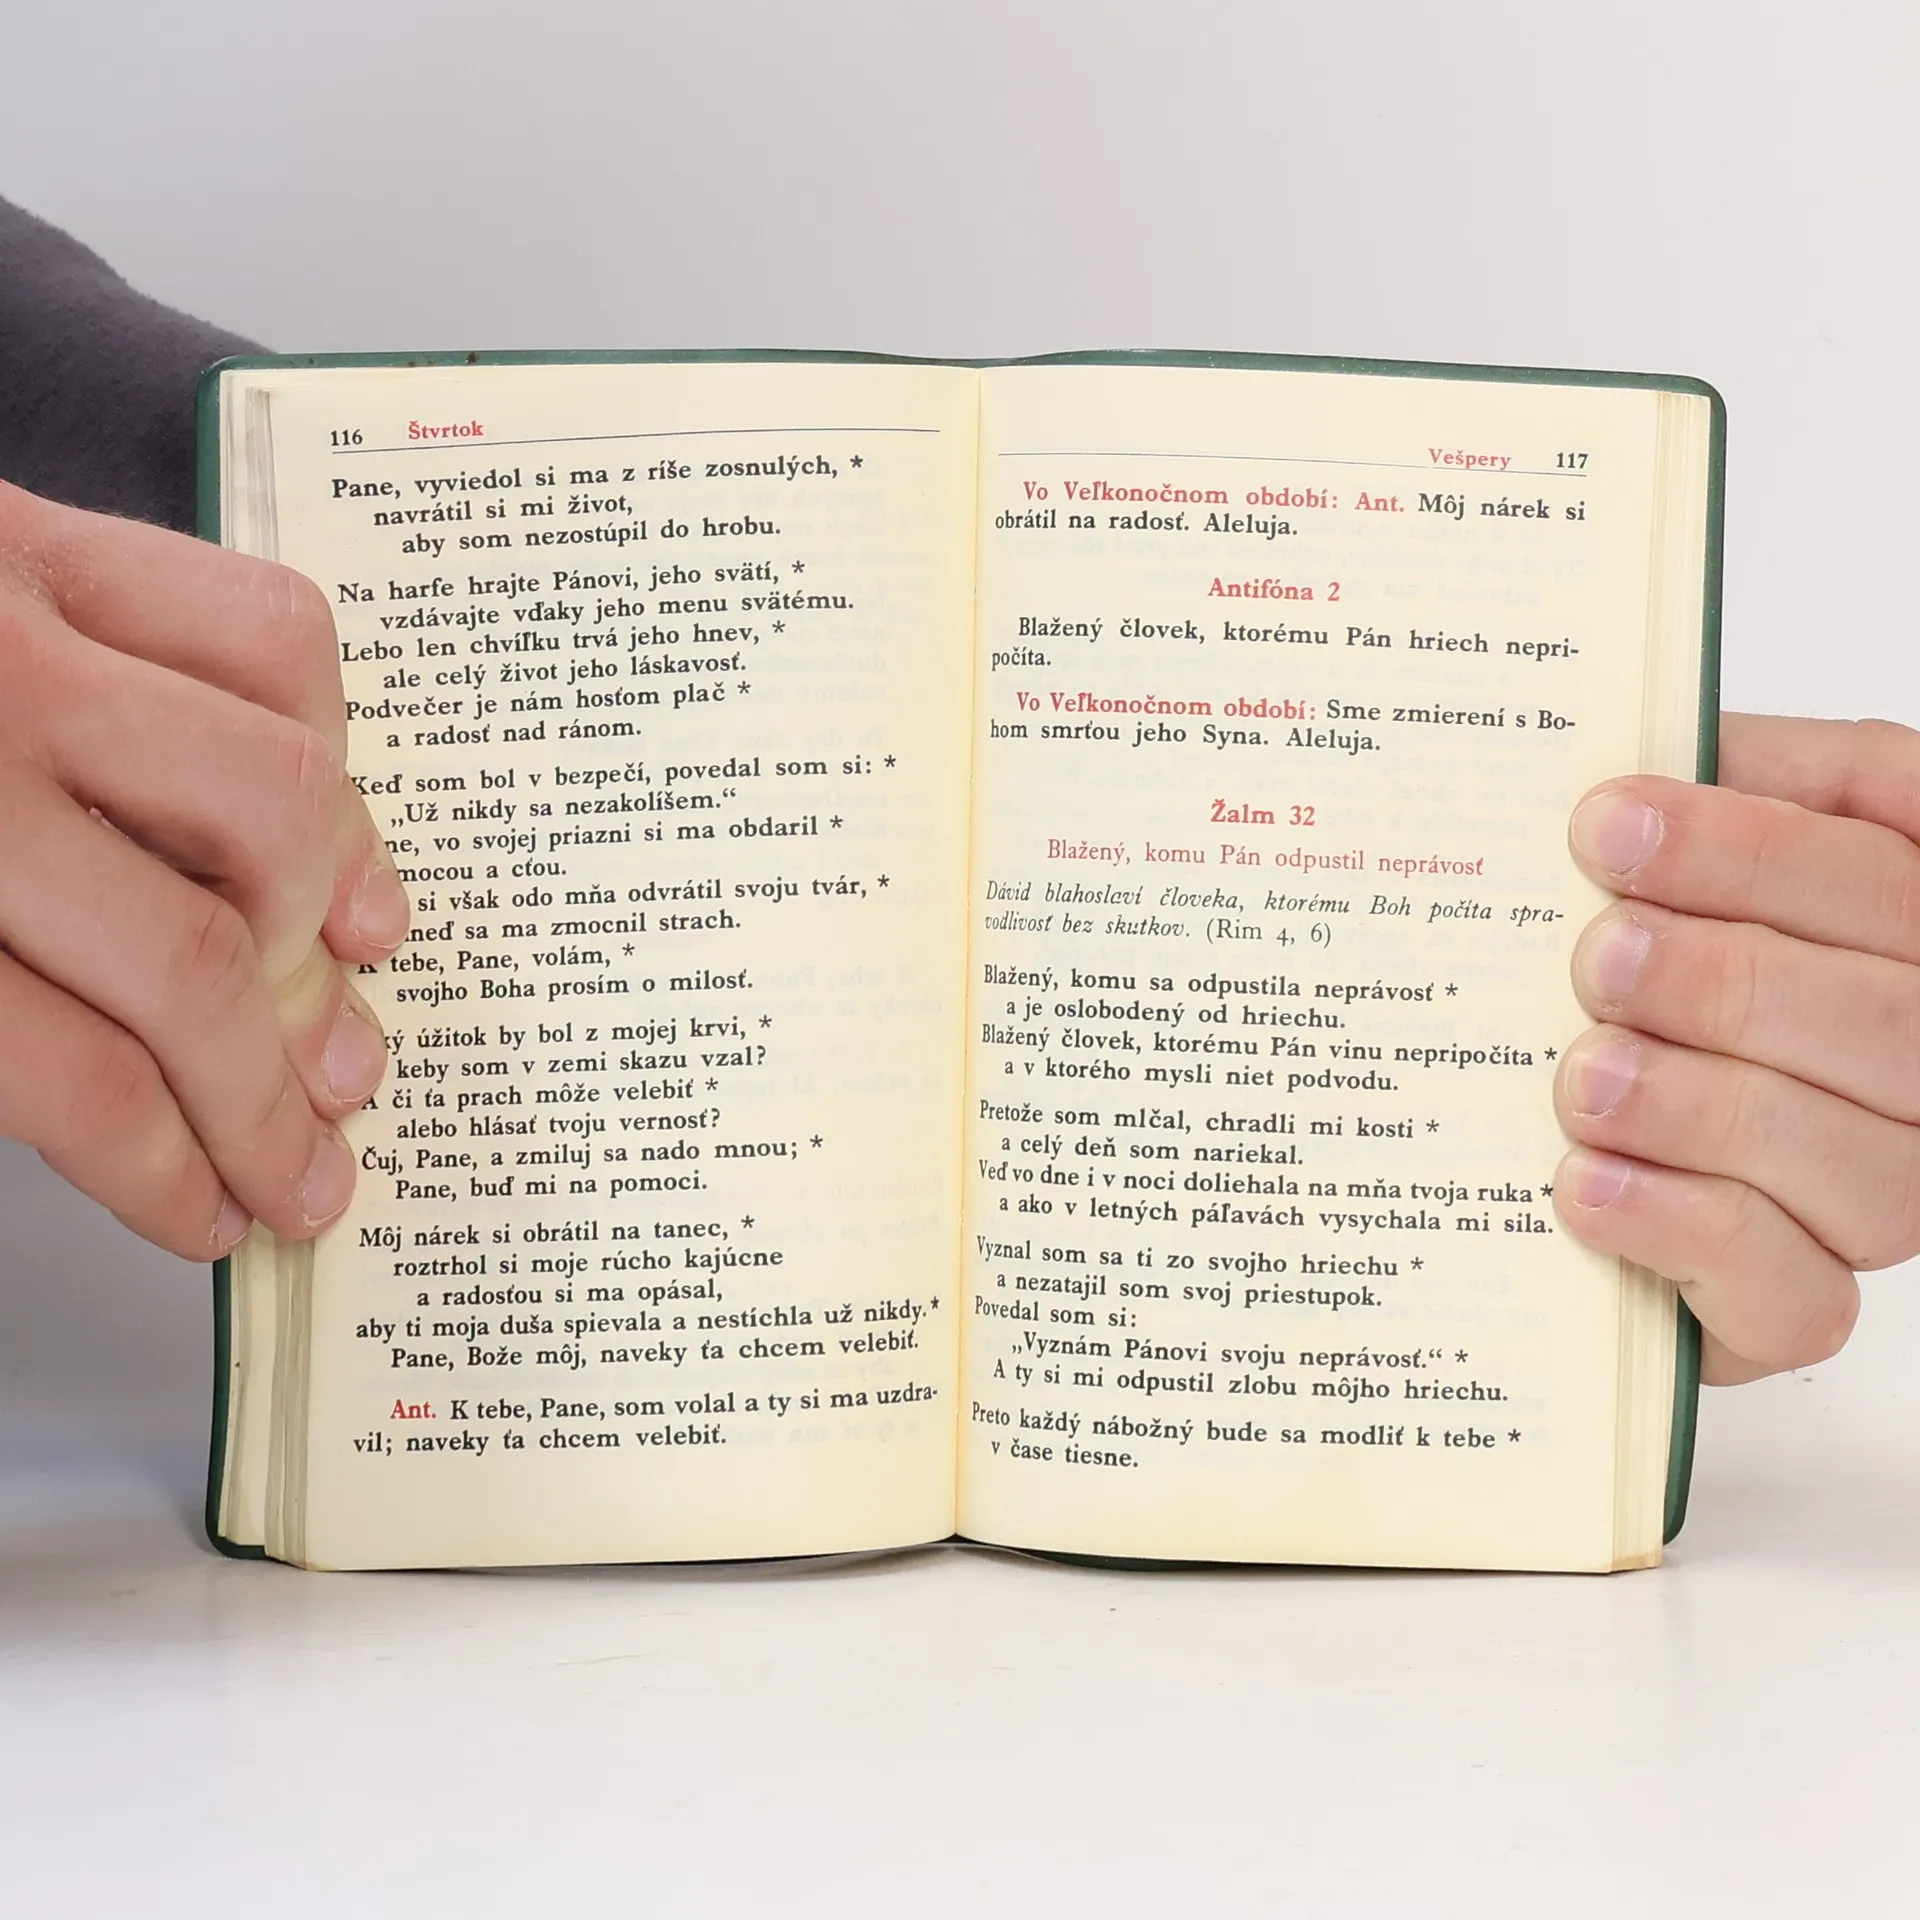 116 Štvrtok
Pane, vyviedol si ma z ríše zosnulých, *
navrátil si mi život,
aby som nezostúpil do hrobu.
Na harfe hrajte Pánovi, jeho svätí, *
vzdávajte vďaky jeho menu svätému.
Lebo len chvíľku trvá jeho hnev, *
ale celý život jeho láskavosť.
Podvečer je nám hosťom plač *
a radosť nad ránom.
Keď som bol v bezpečí, povedal som si: *
„Už nikdy sa nezakolíšem.“
vo svojej priazni si ma obdaril *
mocou a cťou.
si však odo mňa odvrátil svoju tvár, *
sa ma zmocnil strach.
K tebe, Pane, volám, *
svojho Boha prosím o milosť.
úžitok by bol z mojej krvi, *
keby som v zemi skazu vzal?
A či ťa prach môže velebiť *
alebo hlásať tvoju vernosť?
Čuj, Pane, a zmiluj sa nado mnou; *
Pane, buď mi na pomoci.
Môj nárek si obrátil na tanec, *
roztrhol si moje rúcho kajúcne
a radosťou si ma opásal,
aby ti moja duša spievala a nestíchla už nikdy.*
Pane, Bože môj, naveky ťa chcem velebiť.
Ant. K tebe, Pane, som volal a ty si ma uzdra-
vil; naveky ťa chcem velebiť.
Vešpery 117
Vo Veľkonočnom období: Ant. Môj nárek si
obrátil na radosť. Aleluja.
Antifóna 2
Blažený človek, ktorému Pán hriech nepri-
počíta.
Vo Veľkonočnom období: Sme zmierení s Bo-
hom smrťou jeho Syna. Aleluja.
Žalm 32
Blažený, komu Pán odpustil neprávosť
Dávid blahoslaví človeka, ktorému Boh počíta spra-
vodlivosť bez skutkov. (Rim 4, 6)
Blažený, komu sa odpustila neprávosť *
a je oslobodený od hriechu.
Blažený človek, ktorému Pán vinu nepripočíta *
a v ktorého mysli niet podvodu.
Pretože som mlčal, chradli mi kosti *
a celý deň som nariekal.
Veď vo dne i v noci doliehala na mňa tvoja ruka *
a ako v letných páľavách vysychala mi sila.
Vyznal som sa ti zo svojho hriechu *
a nezatajil som svoj priestupok.
Povedal som si:
„Vyznám Pánovi svoju neprávosť.“ *
A ty si mi odpustil zlobu môjho hriechu.
Preto každý nábožný bude sa modliť k tebe *
v čase tiesne.